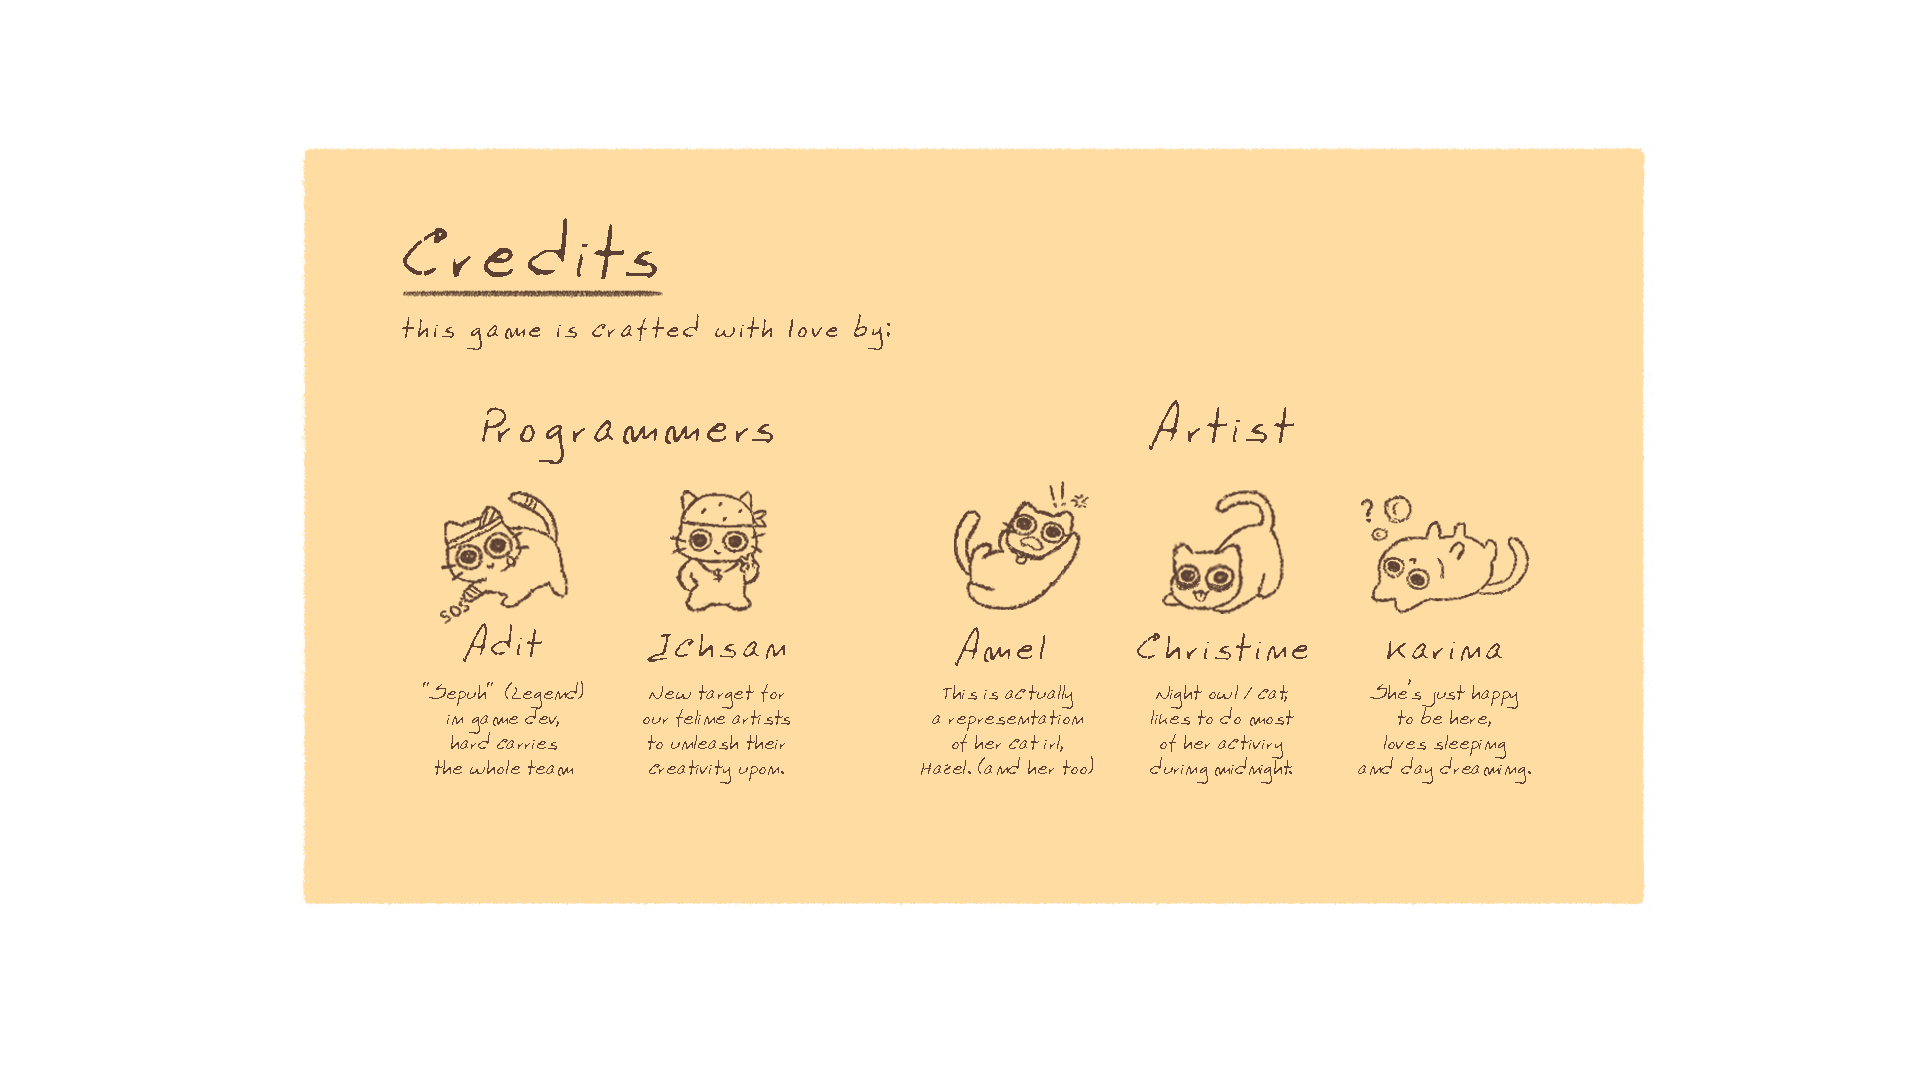 Credits
this game is crafted with love by:
Programmers
SOS
Adit
"Sepuh" (Legend)
in game dev,
hard carries
the whole team
$
Ichsan
New target for
our feline artists
to unleash their
creativity upon.
Artist
!!
Amel
This is actually
a representation
of her cat irl,
Hazel. (and her too)
Christine
Night owl / cat,
likes to do most
of her activiry
during midnight.
?
Karina
She's just happy
to be here,
loves sleeping
and day dreaming.